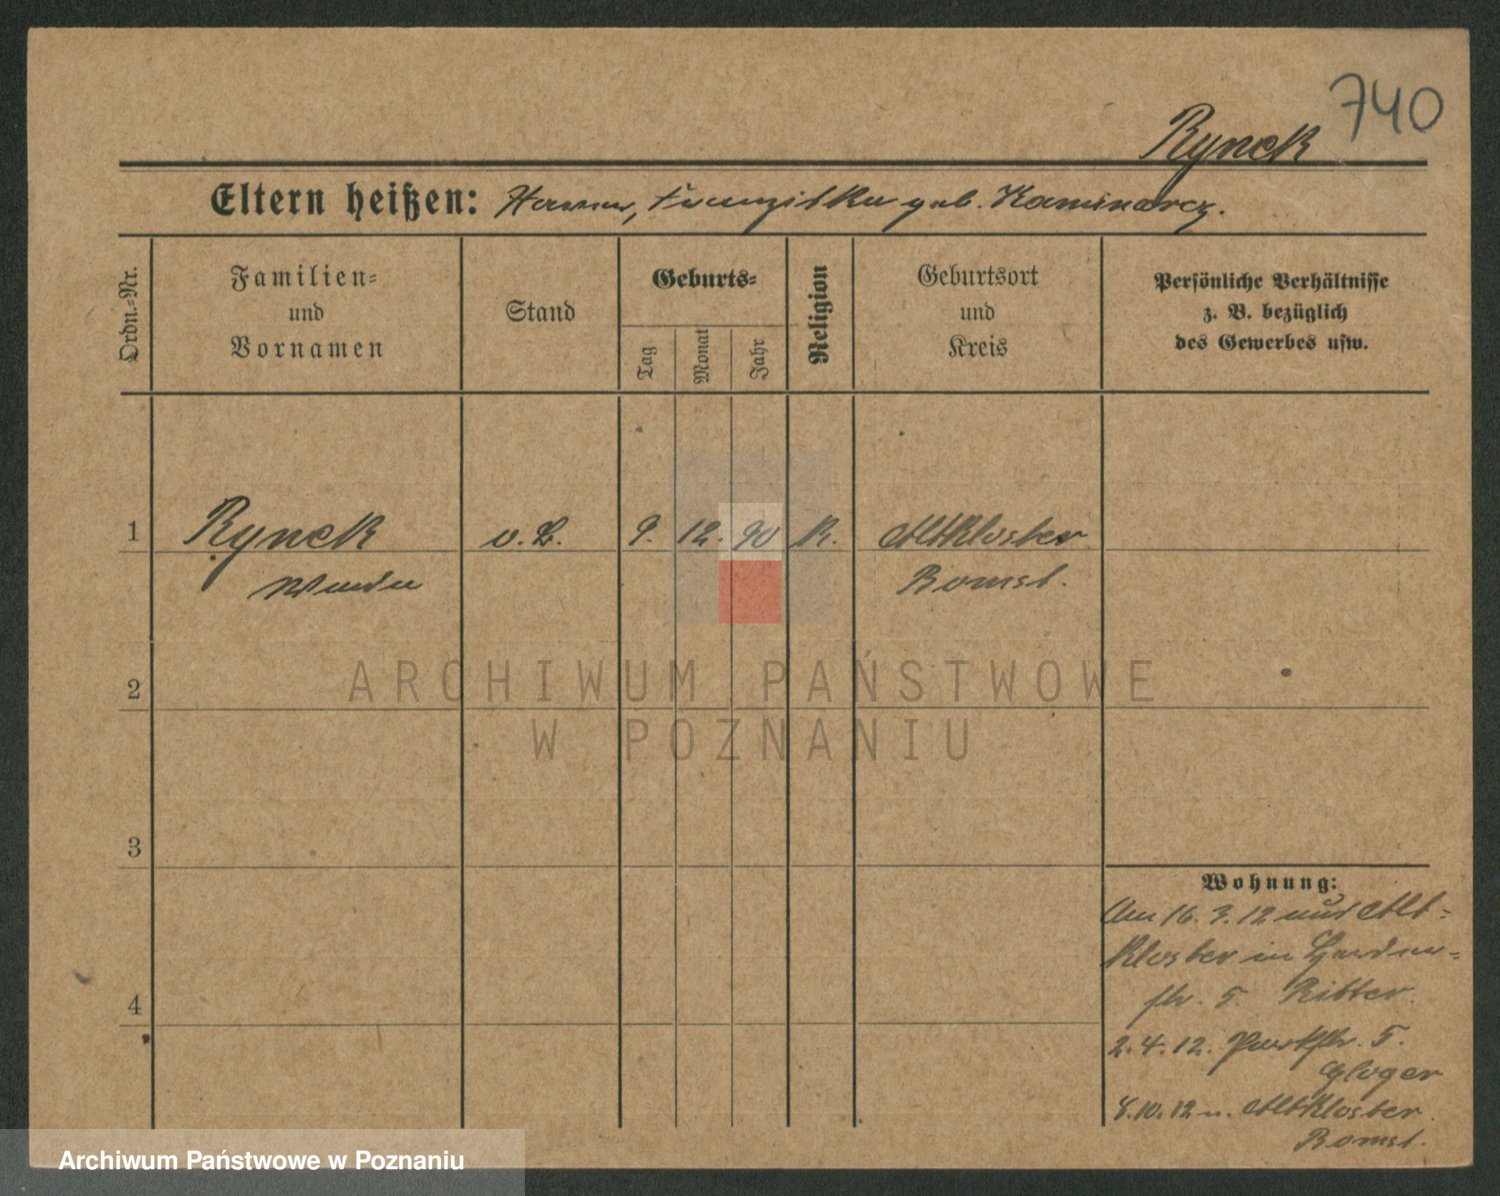 740
Rynek
Eltern heißen: Franziska geb. Kaminarcz.
Ordn.-Nr.
Familien-
und
Vornamen
Stand
Geburts-
Tag
Monat
Jahr
Religion
Geburtsort
und
Kreis
Persönliche Verhältnisse
z. B. bezüglich
des Gewerbes usw.
1 Rynek o. B. 9. 12. 90 K. Altkloster
Bomst.
2
3
4
Wohnung:
Am 16. 3. 12 aus Alt-
kloster in
str. 5 Ritter.
2. 4. 12. Parkstr. 5.
Gloger
8. 10. 12 n. Altkloster
Bomst.
ARCHIWUM PAŃSTWOWE
W POZNANIU
Archiwum Państwowe w Poznaniu